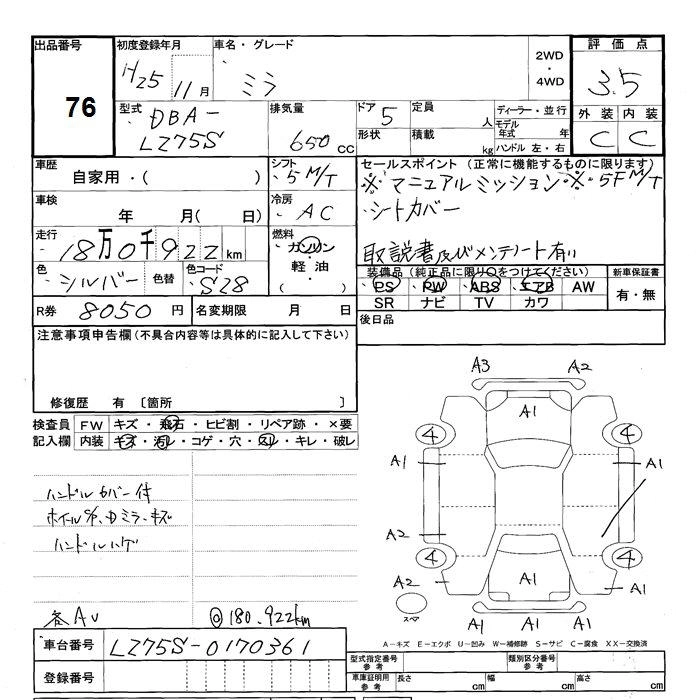 出品番号 76
初度登録年月 H25 11月
車名・グレード ミラ
2WD・4WD
評価点 3.5
外装 内装
C C
型式 DBA-LZ75S
排気量 650cc
ドア 5
形状
定員 人
積載 kg
ディーラー・並行
モデル年式 年
ハンドル 左・右
車歴 自家用・( )
シフト 5 M/T
車検 年 月( 日)
冷房 AC
走行 18万0千922km
燃料 ガソリン・軽油・( )
色 シルバー 色替
色コード S28
R券 8050円
名変期限 月 日
セールスポイント (正常に機能するものに限ります)
※マニュアルミッション※ 5F M/T
・シートカバー
取説書及びメンテノート有り
装備品(純正品に限り○をつけてください)
PS PW ABS エアB AW
SR ナビ TV カワ
新車保証書
有・無
後日品
注意事項申告欄(不具合内容等は具体的に記入して下さい)
修復歴 有 〔箇所 〕
検査員記入欄
FW キズ・飛石・ヒビ割・リペア跡・×要
内装 キズ・汚レ・コゲ・穴・スレ・キレ・破レ
ハンドルカバー付
ホイールC/P、Dミラーキズ
ハンドルハゲ
各AU ◎180.922km
A3 A2
A1
4 4
A1 A1
A2
4 4
A2 A1 A1
スペア
A1 A1 A1
A-キズ E-エクボ U-凹み W-補修跡 S-サビ C-腐食 XX-交換済
車台番号 LZ75S-0170361
登録番号
型式指定番号 参考
類別区分番号 参考
車庫証明用 参考
長さ cm
幅 cm
高さ cm